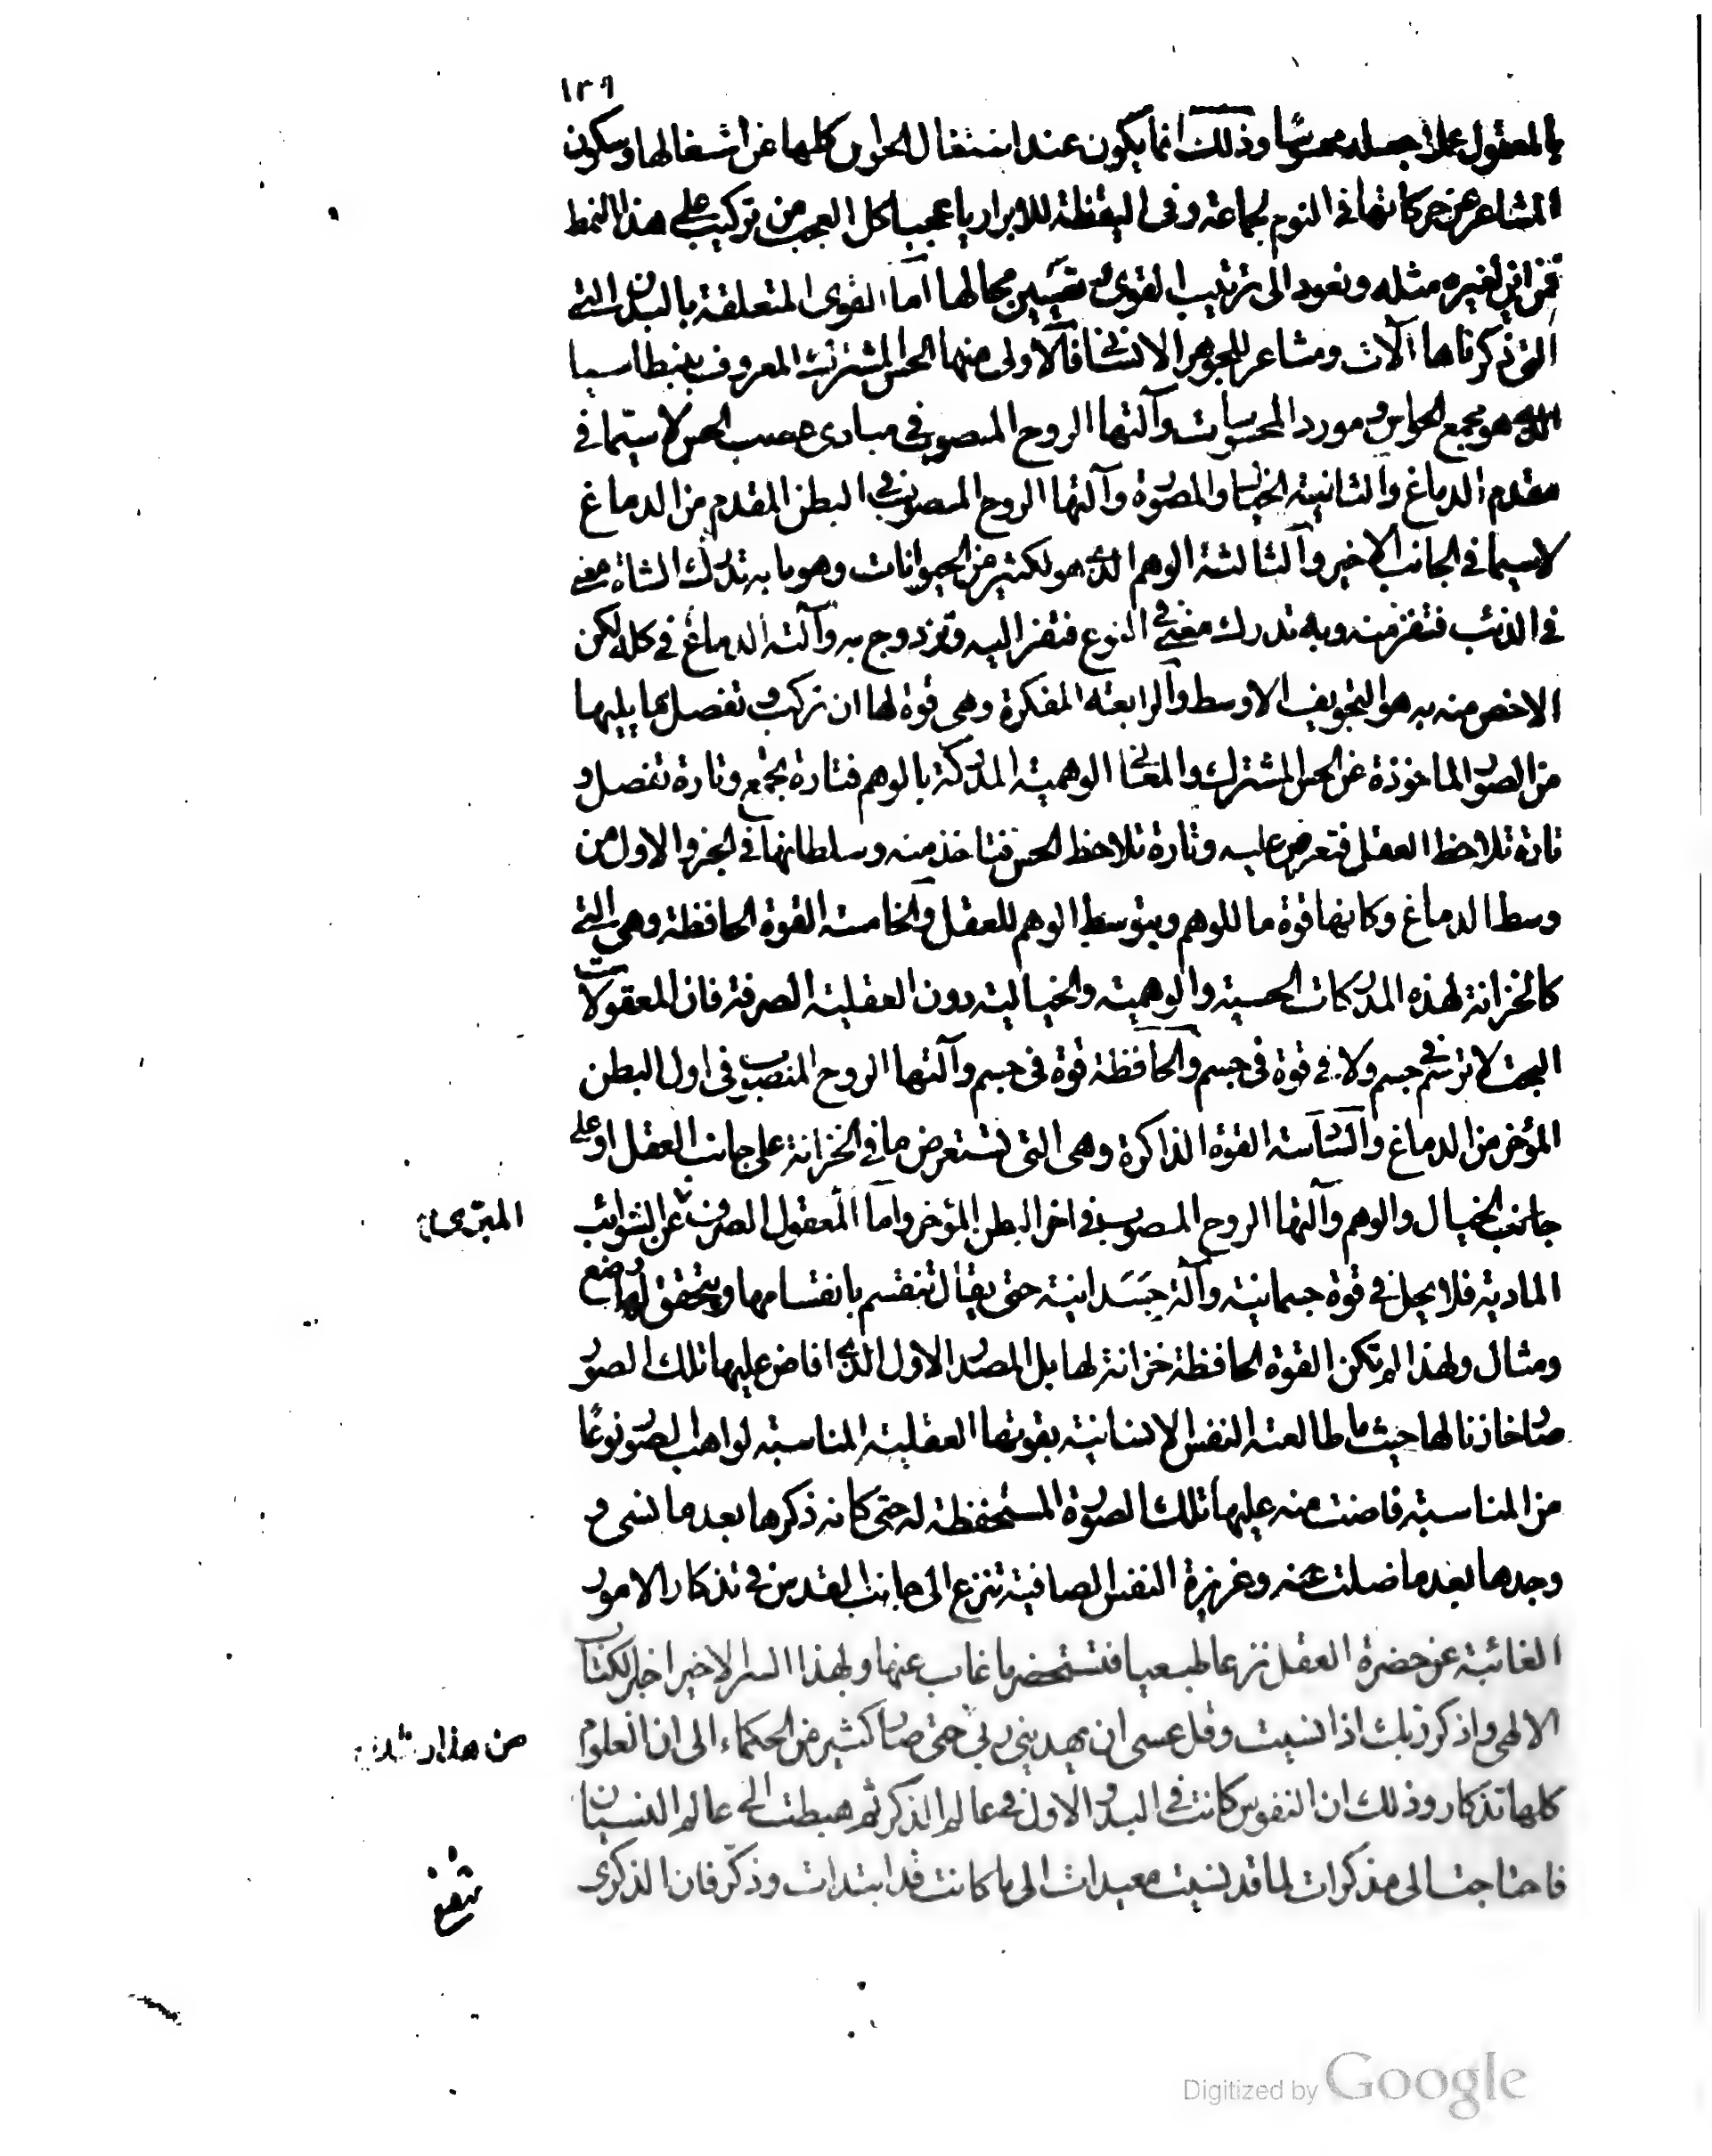 ١٣٦
بالمعقول عملا جسدا محسوسًا وذلك انما يكون عند اشتغال الحواس كلها عن اشغالها وسكون
المشاعر عن حركاتها فى النوم لجماعة وفى اليقظة للابرار يا عجبا كل العجب من تركيب على هذا النمط
فمن اين لغيره مثله ونعود الى ترتيب القوى وتعيين محالها اما القوى المتعلقة بالبدن التى
التى ذكرناها آلات ومشاعر للجوهر الانسانى فالاولى منها الحس المشترك المعروف ببنطاسيا
الذى هو مجمع الحواس ومورد المحسوسات وآلتها الروح المصبوب فى مبادى عصب الحس لا سيما فى
مقدم الدماغ والثانية الخيال والمصورة وآلتها الروح المصبوب فى البطن المقدم من الدماغ
لا سيما فى الجانب الاخير والثالثة الوهم الذى هو لكثير من الحيوانات وهو ما به تدرك الشاة معنى
فى الذئب فتنفر منه وبه تدرك معنى فى النوع فتنفر اليه وتزدوج به وآلته الدماغ فى كله لكن
الاخص منه به هو التجويف الاوسط والرابعة المفكرة وهى قوة لها ان تركب وتفصل ما يليها
من الصور الماخوذة عن الحس المشترك والمعانى الوهمية المدركة بالوهم فتارة تجمع وتارة تفصل و
تارة تلاحظ العقل فتعرض عليه وتارة تلاحظ الحس فتاخذ منه وسلطانها فى الجزو الاول من
وسط الدماغ وكانها قوة ما للوهم وبتوسط الوهم للعقل والخامسة القوة الحافظة وهى التى
كالخزانة لهذه المدركات الحسية والوهمية والخيالية دون العقلية الصرفة فان المعقولات
البحت لا ترتسم فى جسم ولا فى قوة فى جسم والحافظة قوة فى جسم وآلتها الروح المنصب فى اول البطن
المؤخر من الدماغ والسادسة القوة الذاكرة وهى التى تستعرض ما فى الخزانة على جانب العقل او على
جانب الخيال والوهم وآلتها الروح المصبوب فى اخر البطن المؤخر واما المعقول الصرف عن الشوائب
المبرّى
المادية فلا يحل فى قوة جسمانية وآلة جسدانية حتى يقال تنقسم بانقسامها ويتحقق لها وضع
ومثال ولهذا لم تكن القوة الحافظة خزانة لها بل المصدر الاول الذى افاض عليها تلك الصور
صار خازنا لها حيث ما طالعته النفس الانسانية بقوتها العقلية المناسبة لواهب الصور نوعًا
من المناسبة فاضت منه عليها تلك الصورة المستحفظة له حتى كانه ذكرها بعد ما نسى و
وجدها بعد ما ضلت عنه وغريزة النفس الصافية تنزع الى جانب القدس فى تذكار الامور
الغائبة عن حضرة العقل نزعا طبيعيا فتستحضر ما غاب عنها ولهذا السر الاخير اخبر الكتاب
الالهى واذكر ربك اذا نسيت وقل عسى ان يهدينى ربى حتى صار كثير من الحكماء الى ان العلوم
من هذا رشدا
كلها تذكار وذلك ان النفوس كانت فى البدو الاول فى عالم الذكر ثم هبطت الى عالم النسيان
فاحتاجت الى مذكرات لما قد نسيت معيدات الى ما كانت قد ابتدات وذكّر فان الذكرى
تنفع
Digitized by Google